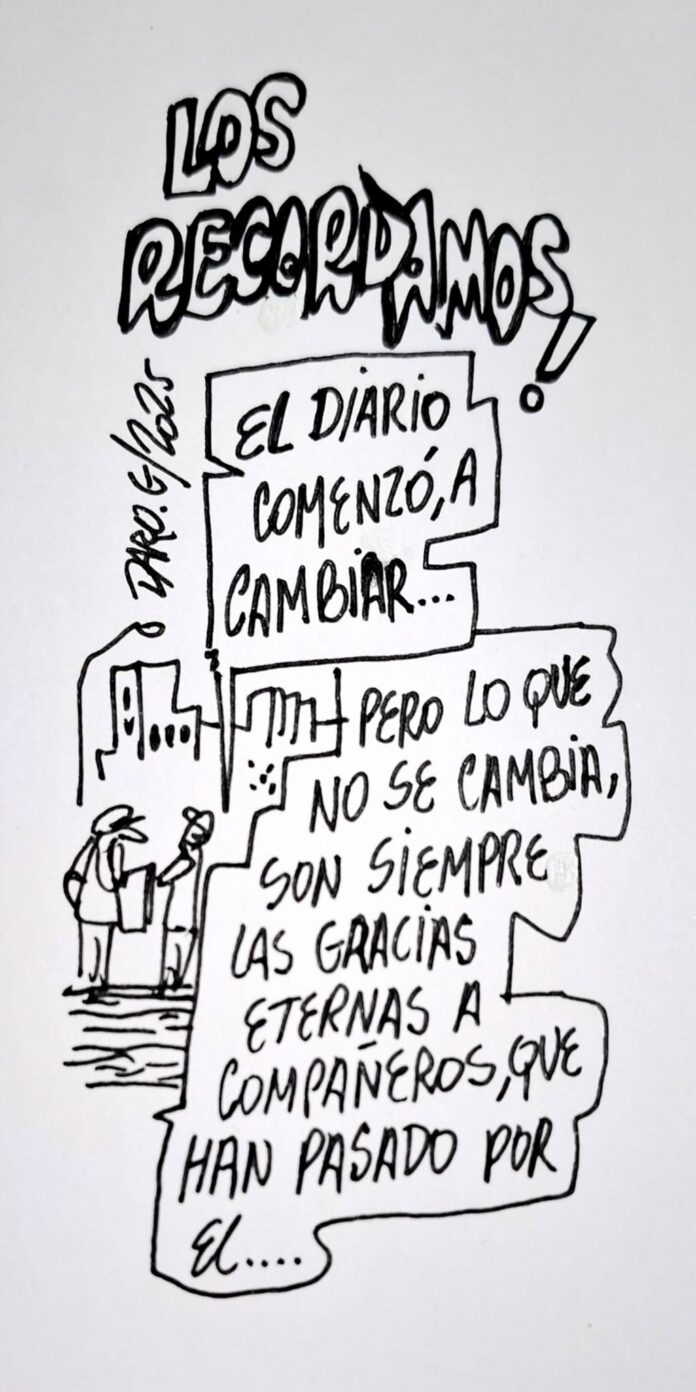 LOS
RECORDAMOS!
DARO.G/2025
EL DIARIO
COMENZÓ, A
CAMBIAR...
PERO LO QUE
NO SE CAMBIA,
SON SIEMPRE
LAS GRACIAS
ETERNAS A
COMPAÑEROS, QUE
HAN PASADO POR
EL....